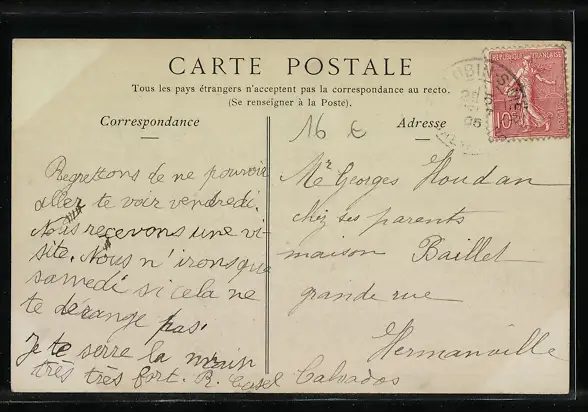 CARTE POSTALE
Tous les pays étrangers n'acceptent pas la correspondance au recto.
(Se renseigner à la Poste).
Correspondance
Regrettons de ne pouvoir
aller te voir vendredi.
Nous recevons une vi-
site. Nous n'irons que
samedi si cela ne
te dérange pas.
Je te serre la main
très très fort. R.
16 €
Adresse
Mr Georges Houdan
chez ses parents
maison Baillet
grande rue
Hermanville
Calvados
REPUBLIQUE FRANÇAISE
10
05